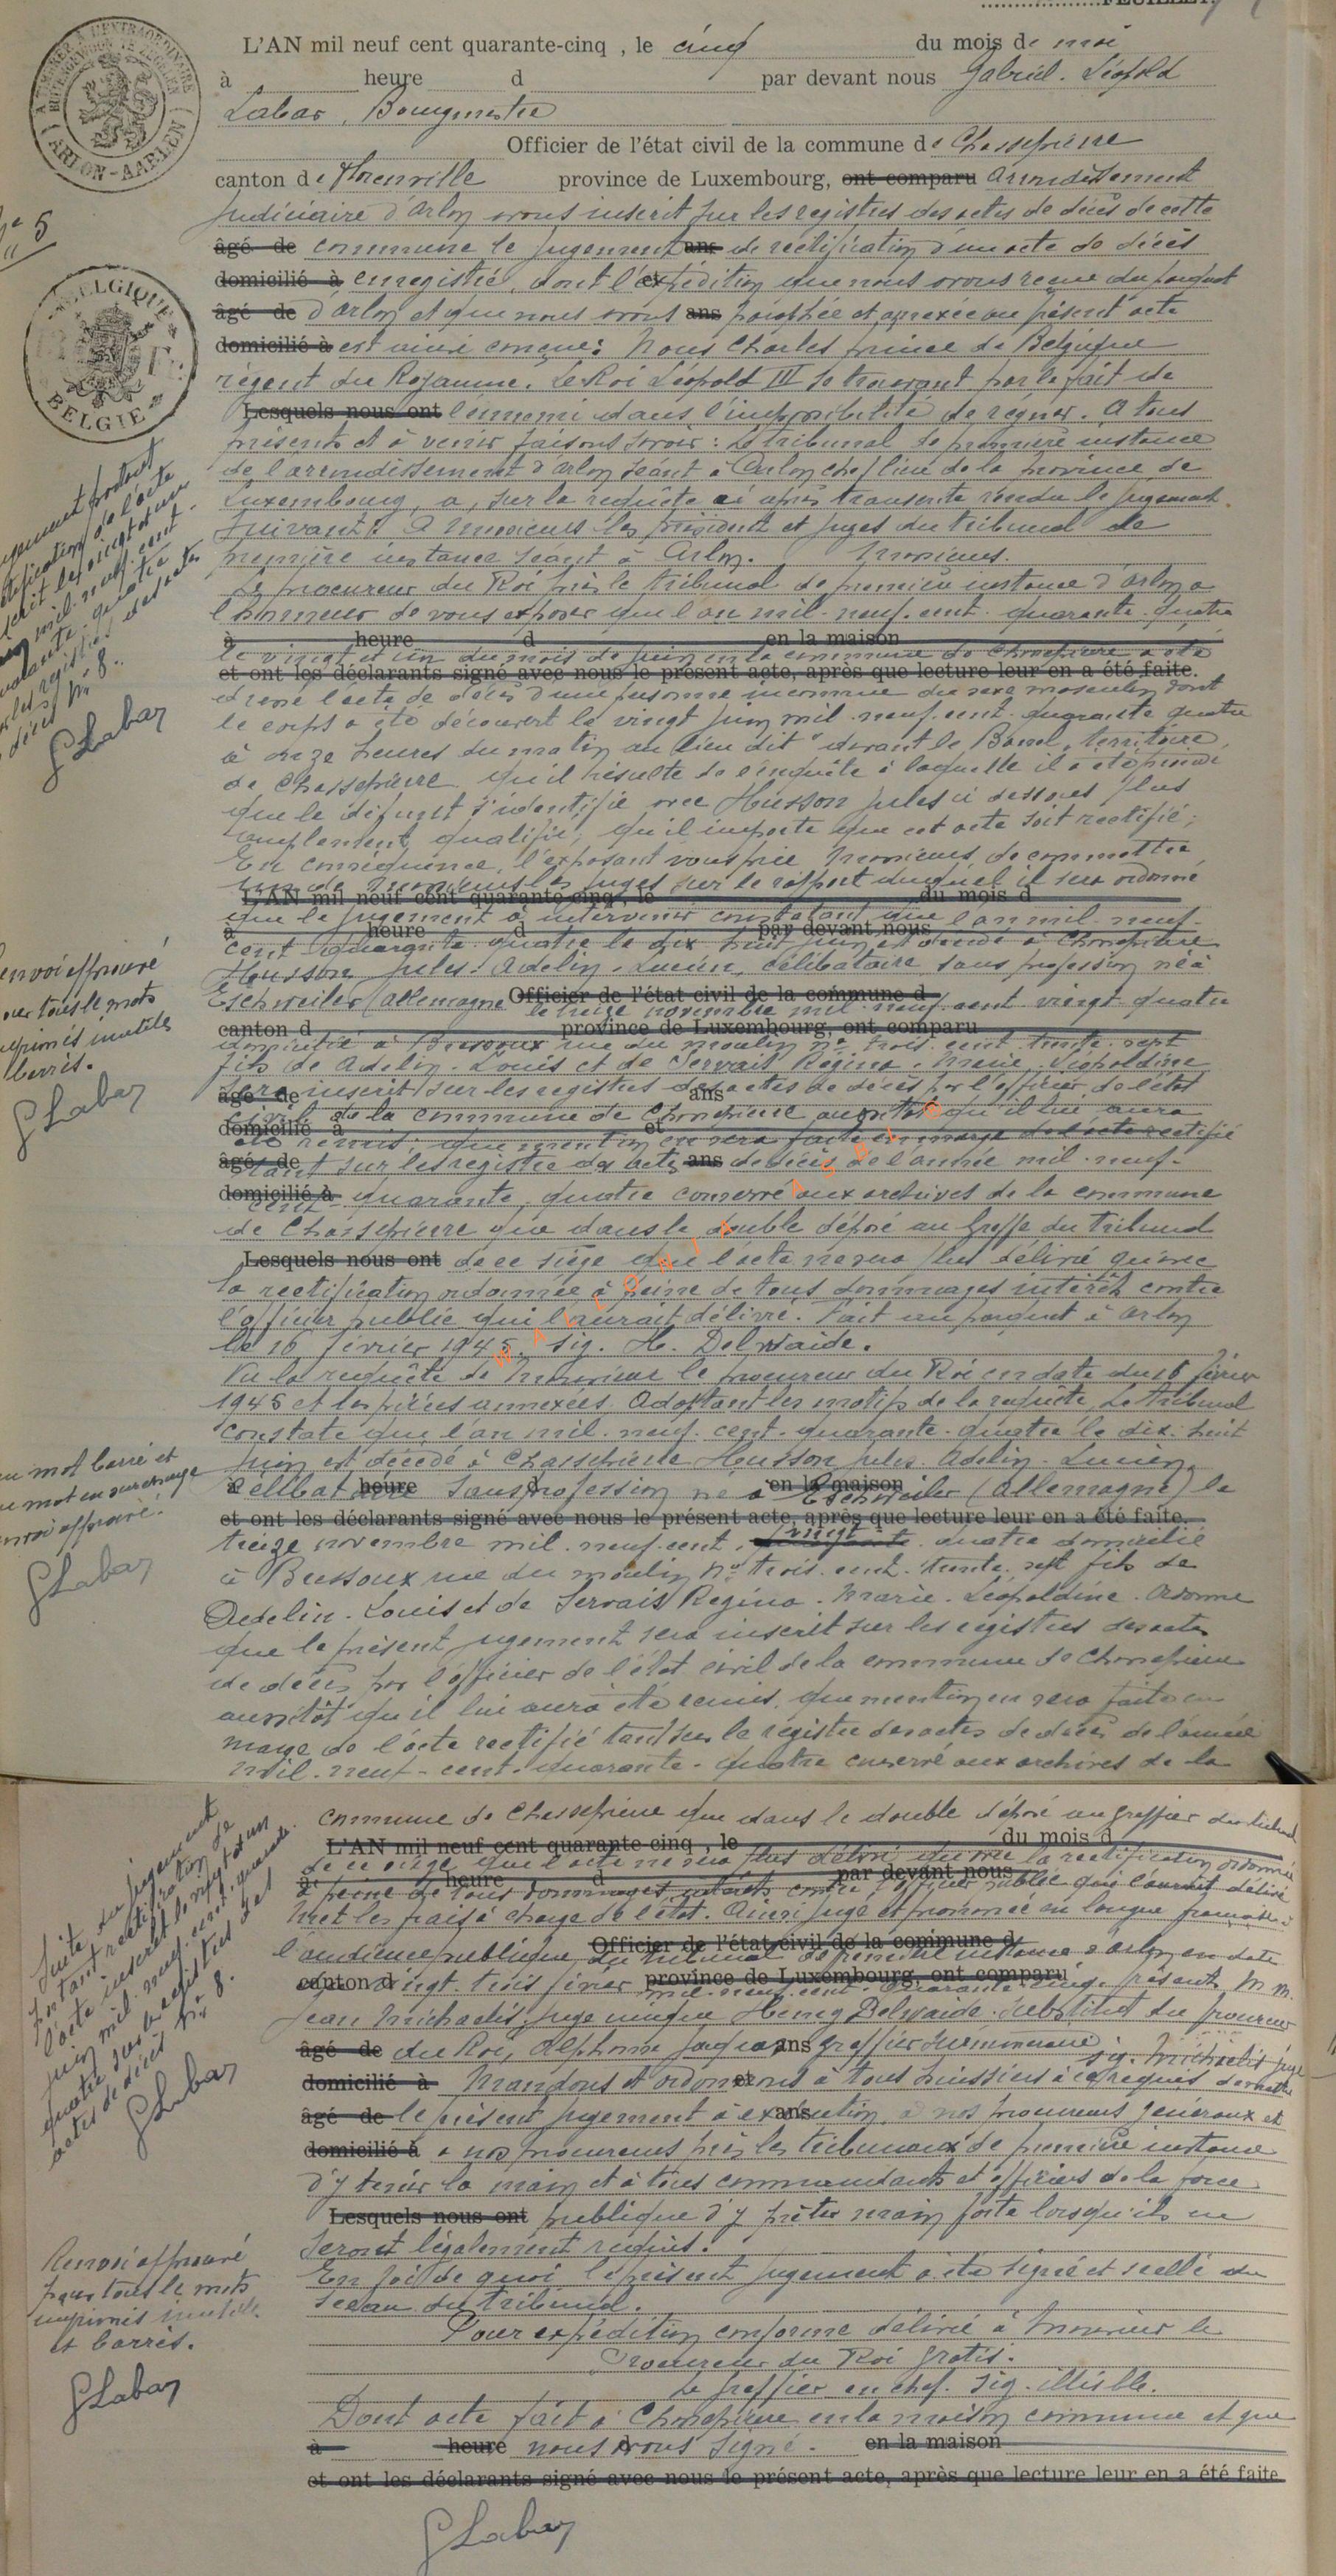 FEUILLET.
L'AN mil neuf cent quarante-cinq , le cinq du mois de mai
à heure d par devant nous Gabriel. Léopold
Labar, Bourgmestre
Officier de l'état civil de la commune de Chassepierre
canton de Florenville province de Luxembourg, ont comparu arrondissement
judiciaire d'Arlon avons inscrit sur les registres des actes de décès de cette
âgé de commune le jugement ans de rectification d'un acte de décès
domicilié à enregistré, dont l'expédition que nous avons reçue du parquet
âgé de d'Arlon et que nous avons ans paraphée et annexée au présent acte
domicilié à est ainsi conçue: Nous Charles prince de Belgique
régent du Royaume. Le Roi Léopold III se trouvant par le fait de
Lesquels nous ont l'ennemi dans l'impossibilité de régner. A tous
présents et à venir faisons savoir: Le tribunal de première instance
de l'arrondissement d'Arlon séant à Arlon chef lieu de la province de
Luxembourg, a, sur la requête ci après transcrite rendu le jugement
suivant: A messieurs les président et juges du tribunal de
première instance séant à Arlon. Messieurs.
Le procureur du Roi près le tribunal de première instance d'Arlon a
l'honneur de vous exposer que l'an mil. neuf. cent. quarante. quatre
à heure d en la maison
le vingt et un du mois de juin en la commune de Chassepierre a été
et ont les déclarants signé avec nous le présent acte, après que lecture leur en a été faite.
dressé l'acte de décès d'une personne inconnue du sexe masculin dont
le corps a été découvert le vingt juin mil. neuf. cent. quarante quatre
à onze heures du matin au lieu dit "devant le Banel, territoire
de Chassepierre qu'il résulte de l'enquête à laquelle il a été procédé
que le défunt s'identifie avec Husson Jules ci dessous plus
amplement qualifié; qu'il importe que cet acte soit rectifié;
En conséquence, l'exposant vous prie, messieurs, de commettre
l'un de messieurs les juges sur le rapport duquel il sera ordonné
L'AN mil neuf cent quarante-cinq, le du mois d
que le jugement à intervenir constatant que l'an mil. neuf.
à heure d par devant nous
cent quarante quatre le dix huit juin est décédé à Chassepierre
Husson Jules. Adelin. Lucien, célibataire sans profession né à
Eschweiler (Allemagne Officier de l'état civil de la commune d
le treize novembre mil. neuf. cent vingt quatre
canton d province de Luxembourg, ont comparu
domicilié à Bressoux rue du moulin no trois. cent. trente. sept
fils de Adelin. Louis et de Servais Régina. Marie. Léopoldine
sera inscrit sur les registres des actes de décès par l'officier de l'état
âgé de ans
civil de la commune de Chassepierre aussitôt qu'il lui aura
domicilié à et
été remis. que mention en sera faite en marge de l'acte rectifié
âgé de tant sur les registre des actes ans de décès de l'année mil. neuf.
domicilié à cent quarante, quatre conservé aux archives de la commune
de Chassepierre que dans le double déposé au Greffe du tribunal
Lesquels nous ont de ce siège que l'acte ne sera plus délivré qu'avec
la rectification ordonnée à peine de tous dommages intérêts contre
l'officier public qui l'aurait délivré. Fait au parquet à Arlon
le 16 février 1945. sig. H. Delwaide.
Vu la requête de Monsieur le procureur du Roi en date du 16 février
1945 et les pièces annexées. Adoptant les motifs de la requête, Le tribunal
constate que l'an mil. neuf. cent. quarante. quatre le dix. huit
juin est décédé à Chassepierre Husson Jules. Adelin. Lucien,
à célibataire heure sans profession né à en la maison Eschweiler (Allemagne) le
et ont les déclarants signé avec nous le présent acte, après que lecture leur en a été faite.
treize novembre mil. neuf. cent. vingt quatre domicilié
à Bressoux rue du moulin no trois. cent. trente. sept fils de
Adelin. Louis et de Servais Regina. Marie. Léopoldine. Ordonne
que le présent jugement sera inscrit sur les registres des actes
de décès par l'officier de l'état civil de la commune de Chassepierre
aussitôt qu'il lui aura été remis, que mention en sera faite en
marge de l'acte rectifié tant sur le registre des actes de décès de l'année
mil. neuf. cent. quarante. quatre conservé aux archives de la
commune de Chassepierre que dans le double déposé au greffier du tribunal
L'AN mil neuf cent quarante-cinq , le du mois d
de ce siège que l'acte ne sera plus délivré qu'avec la rectification ordonnée
à heure d par devant nous
à peine de tous dommages intérêts contre l'officier public qui l'aurait délivré
met les frais à charge de l'état. Ainsi jugé et prononcé en langue française à
l'audience publique Officier de l'état civil de la commune d
du tribunal de première instance d'Arlon en date
canton d vingt. trois février province de Luxembourg, ont comparu présents M. M.
mil. neuf. cent. quarante. cinq.
Jean Michaelis, juge unique Henry Delwaide. Substitut du procureur
âgé de du Roi, Alphonse ans greffier surnuméraire
sig. Michaelis juge
domicilié à Mandons et ordonnons à tous huissiers à ce requis de mettre
âgé de le présent jugement à exécution, à nos procureurs généraux et
domicilié à à nos procureurs près les tribunaux de première instance
d'y tenir la main et à tous commandants et officiers de la force
Lesquels nous ont publique d'y prêter main forte lorsqu'ils en
seront légalement requis.
En foi de quoi le présent jugement a été signé et scellé du
sceau du tribunal.
Pour expédition conforme délivré à Monsieur le
Procureur du Roi gratis.
Le greffier en chef. sig. illisible.
Dont acte fait à Chassepierre en la maison commune et que
à heure nous avons signé. en la maison
et ont les déclarants signé avec nous le présent acte, après que lecture leur en a été faite
GLabar
A TIMBRER A L'EXTRAORDINAIRE
BUITENGEWOON TE ZEGELEN
(ARLON-AARLEN)
No 5
BELGIQUE
BELGIE
jugement portant
rectification de l'acte
inscrit le vingt et un
juin mil. neuf. cent.
quarante. quatre
sur les registres des actes
de décès no 8.
GLabar
Renvoi approuvé
pour tous le mots
imprimés inutiles
barrés.
GLabar
un mot barré et
un mot en surcharge
renvoi approuvé.
GLabar
Suite du jugement
portant rectification de
l'acte inscrit le vingt et un
juin mil. neuf. cent. quarante.
quatre sur les registres des
actes de décès no 8.
GLabar
Renvoi approuvé
pour tous le mots
imprimés inutiles
et barrés.
GLabar